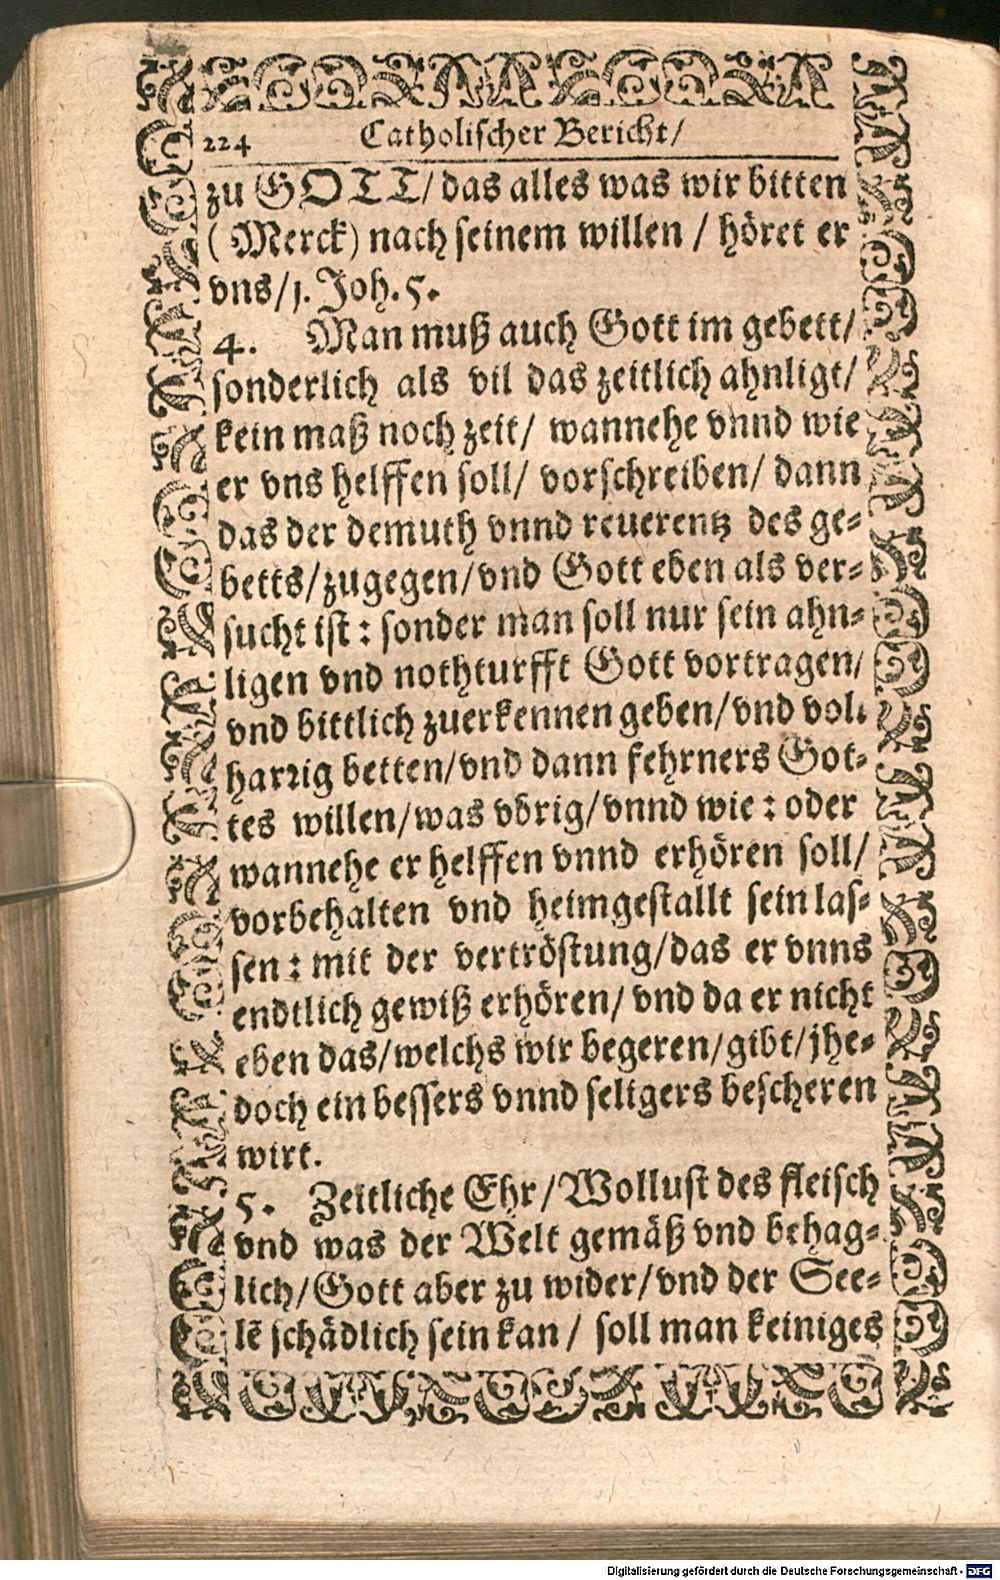 224 Catholischer Bericht/
zu GOTT/ das alles was wir bitten
(Merck) nach seinem willen / höret er
vns/1. Joh. 5.
4. Man muß auch Gott im gebett/
sonderlich als vil das zeitlich ahnligt/
kein maß noch zeit/ wannehe vnnd wie
er vns helffen soll/ vorschreiben/ dann
das der demuth vnnd reuerentz des ge-
betts/zugegen/vnd Gott eben als ver-
sucht ist: sonder man soll nur sein ahn-
ligen vnd nothturfft Gott vortragen/
vnd bittlich zuerkennen geben/vnd vol-
harrig betten/vnd dann fehrners Got-
tes willen/was vbrig/vnnd wie: oder
wannehe er helffen vnnd erhören soll/
vorbehalten vnd heimgestallt sein las-
sen: mit der vertröstung/das er vnns
endtlich gewiß erhören/ vnd da er nicht
eben das/welchs wir begeren/gibt/jhe-
doch ein bessers vnnd seligers bescheren
wirt.
5. Zeitliche Ehr/Wollust des fleisch
vnd was der Welt gemäß vnd behag-
lich/Gott aber zu wider/vnd der See-
lẽ schädlich sein kan / soll man keiniges
Digitalisierung gefördert durch die Deutsche Forschungsgemeinschaft - DFG